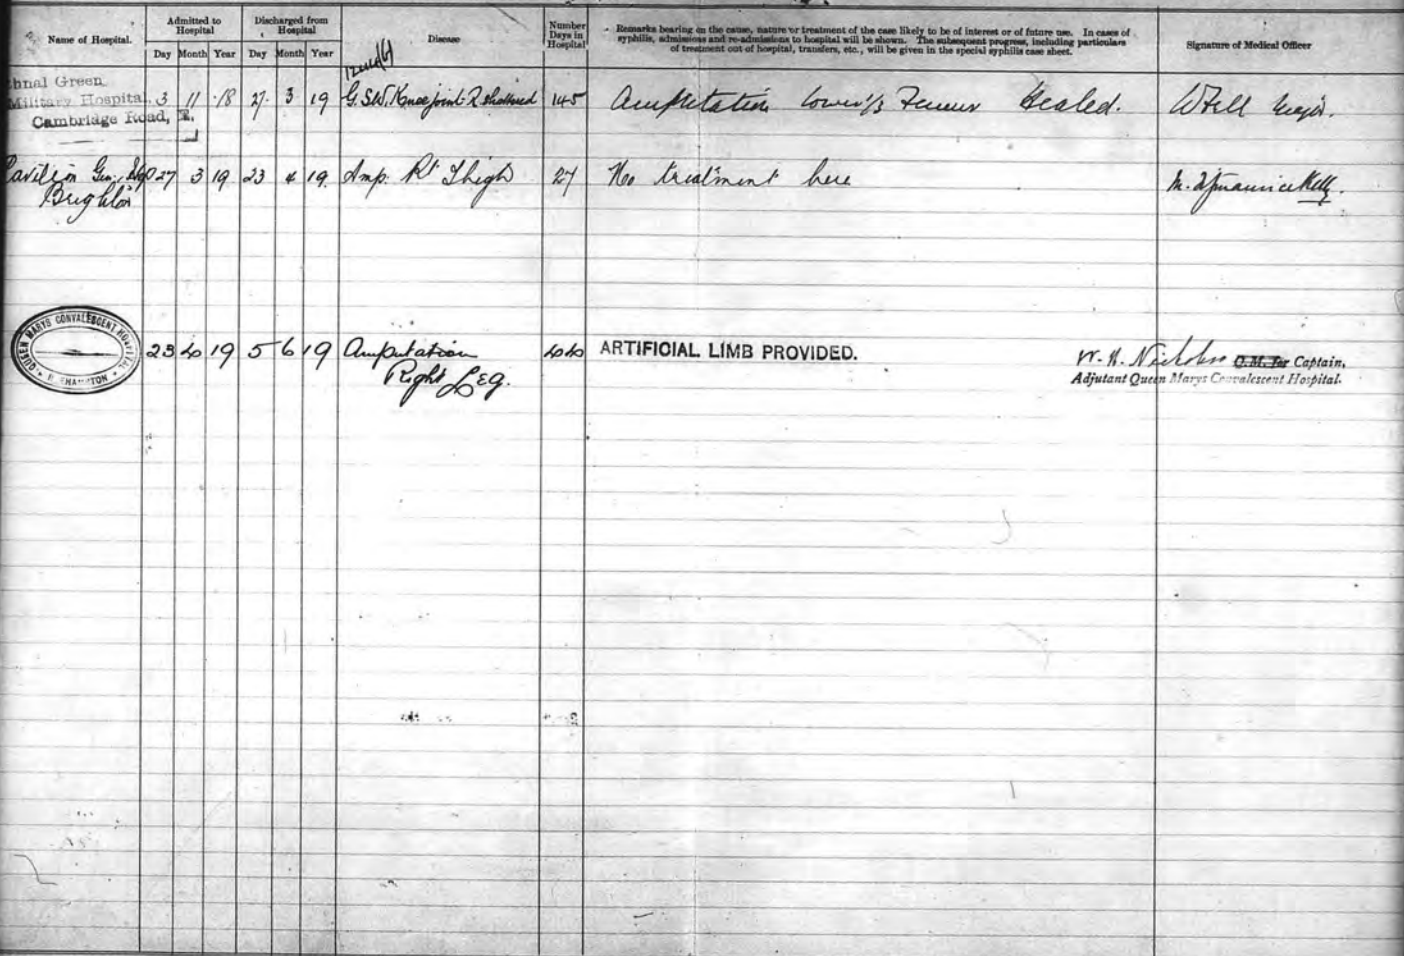 Name of Hospital.
Admitted to Hospital
Discharged from Hospital
Disease
Number Days in Hospital
Remarks bearing on the cause, nature or treatment of the case likely to be of interest or of future use. In cases of
syphilis, admissions and re-admissions to hospital will be shown. The subsequent progress, including particulars
of treatment out of hospital, transfers, etc., will be given in the special syphilis case sheet.
Signature of Medical Officer
Day Month Year Day Month Year
thnal Green
Military Hospital, 3 11 18 27 3 19 G.S.W. Knee joint R. shattered 145 Amputation lower ⅓ Femur Healed.
Cambridge Road, E.
Pavilion Gen. Hosp 27 3 19 23 4 19 Amp. Rt Thigh 27 No treatment here
Brighton
QUEEN MARYS CONVALESCENT HOSPITAL
23 4 19 5 6 19 Amputation 44 ARTIFICIAL LIMB PROVIDED. W. H. Nicholson Captain,
Right Leg. Adjutant Queen Marys Convalescent Hospital.